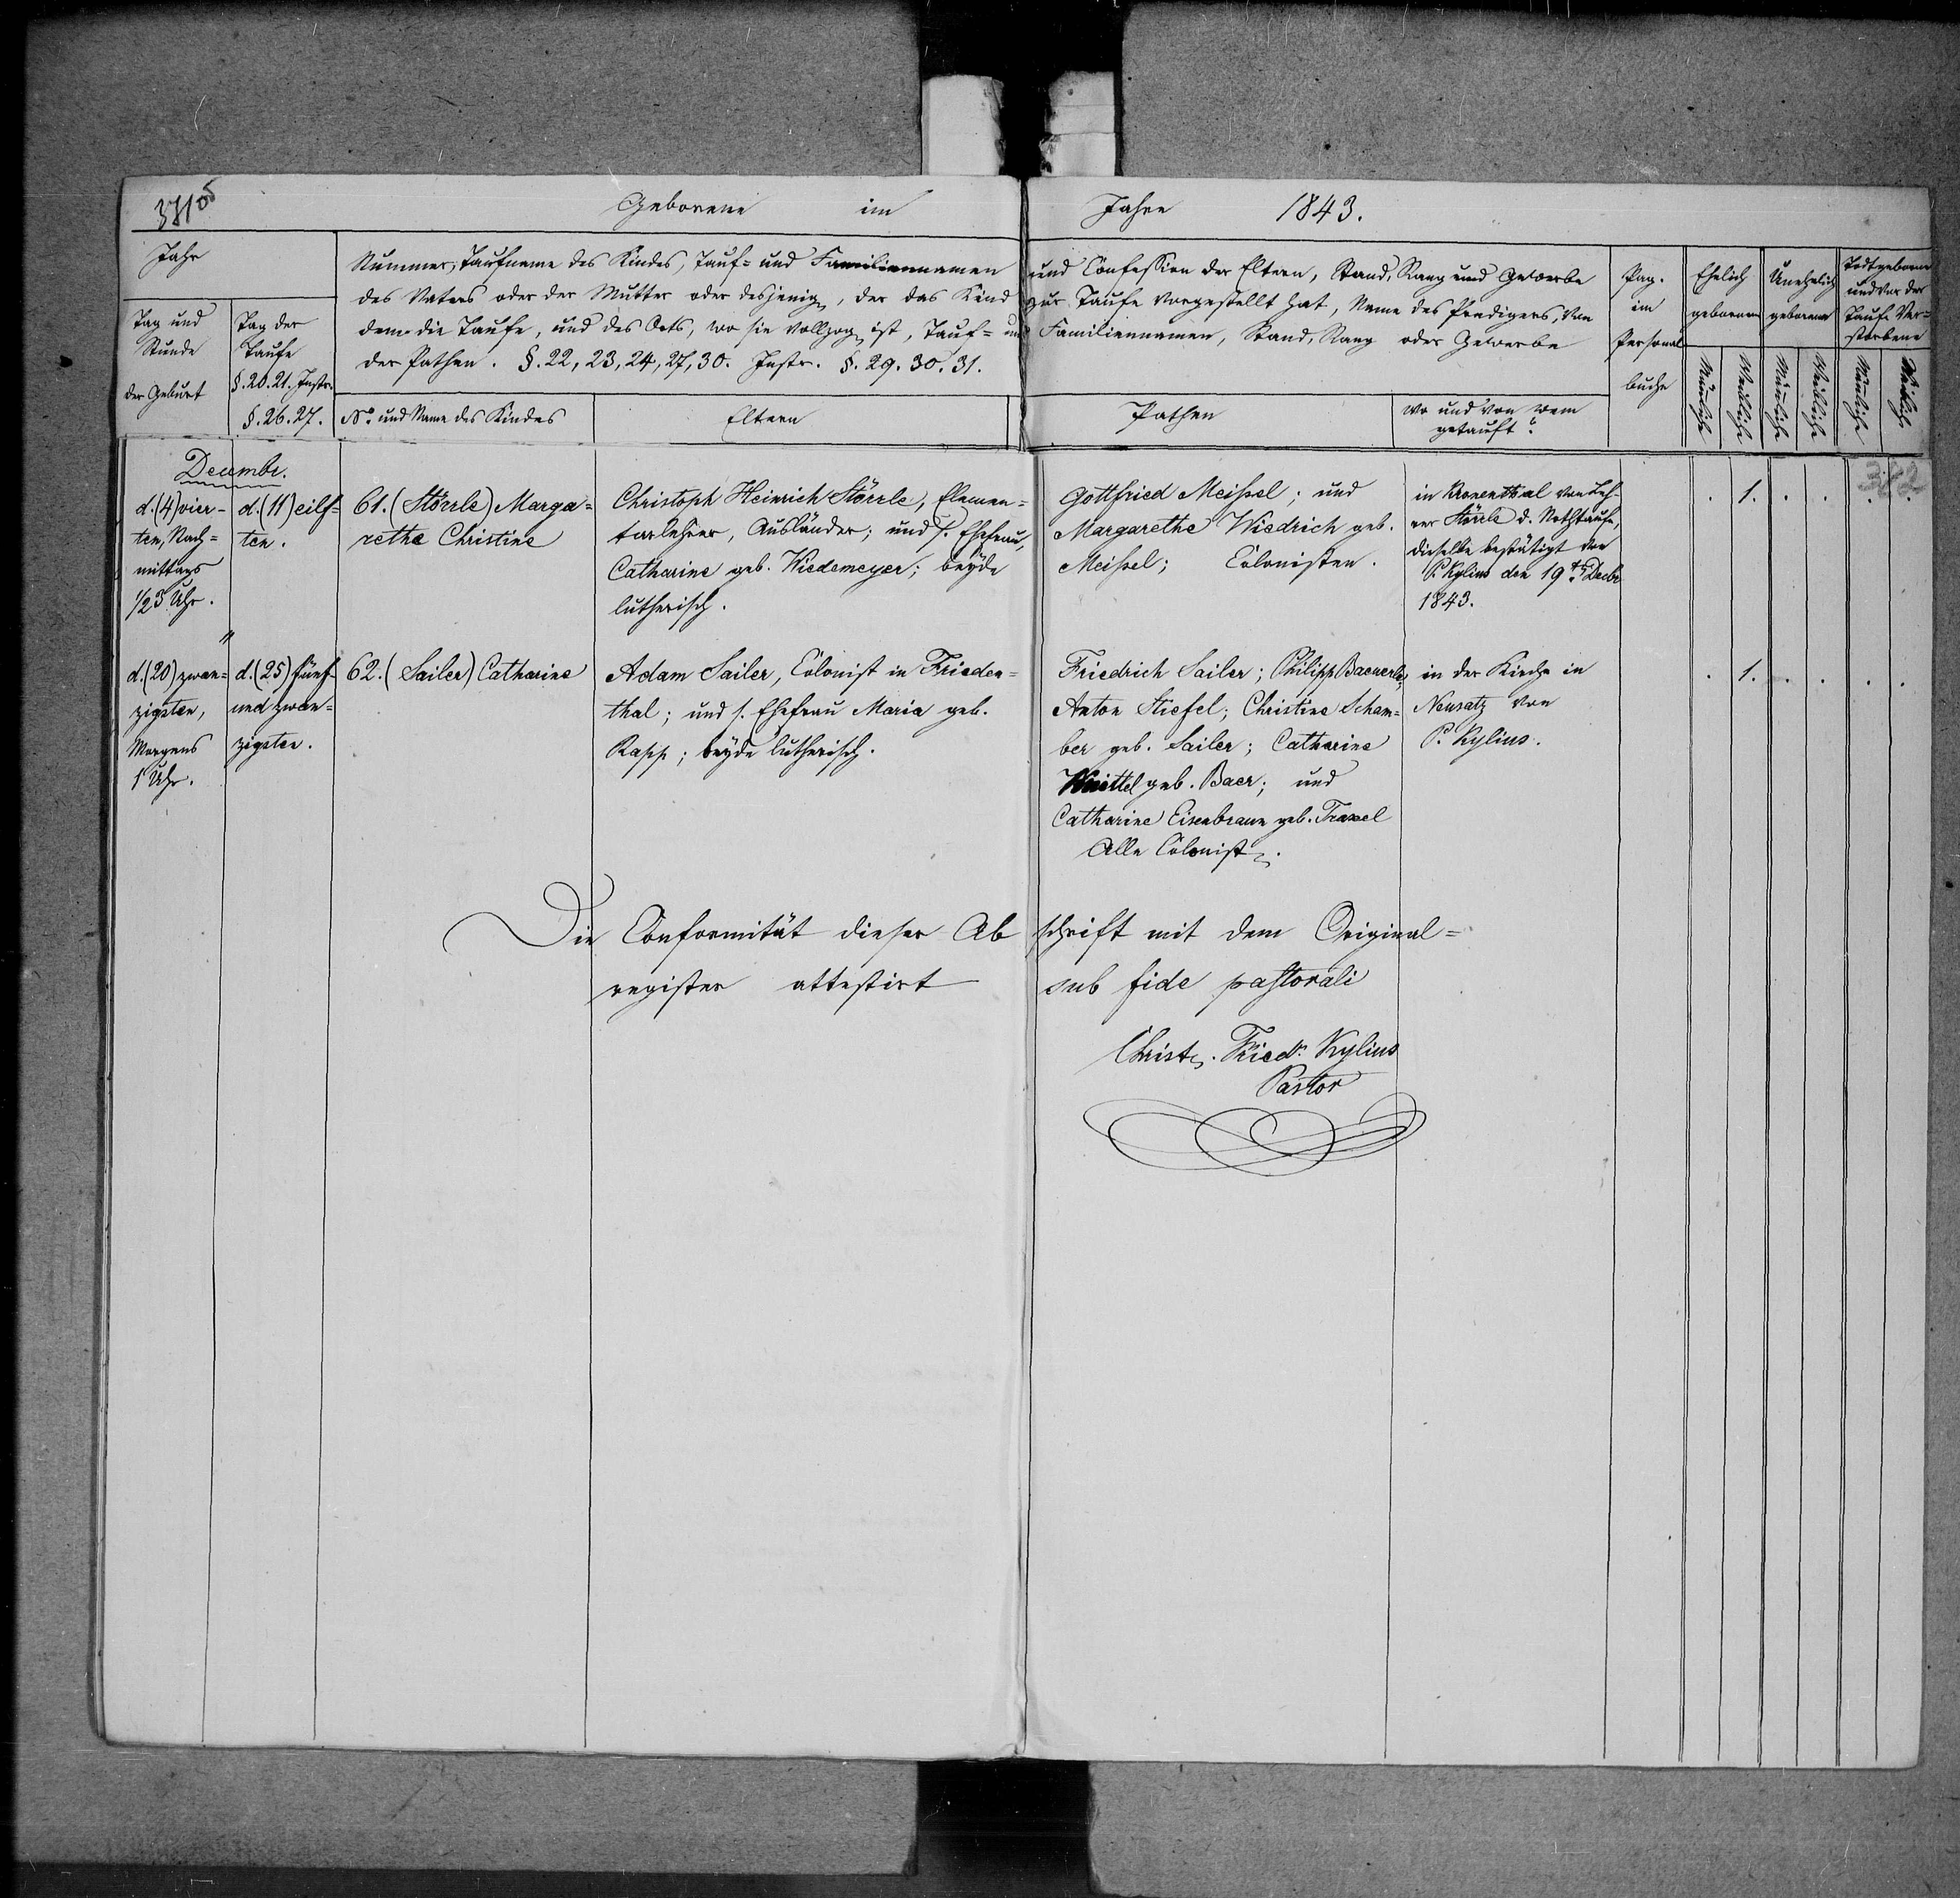 Geborene im Jahre 1843.
Jahr
Tag und Stunde der Geburt
Tag der Taufe §. 20. 21. Instr. §. 26. 27.
Nummer, Taufname des Kindes, Tauf= und Familiennamen und Confession der Eltern, Stand, Rang und Gewerbe
des Vaters oder der Mutter oder desjenigen, der das Kind zur Taufe vorgestellt hat, Name des Predigers, von
dem die Taufe, und des Orts, wo sie vollzogen ist, Tauf= und Familiennamen, Stand, Rang oder Gewerbe
der Pathen. §. 22, 23, 24, 27, 30. Instr. §. 29. 30. 31.
No. und Name des Kindes
Eltern
Pathen
Wo und von wem
getauft?
Pag.
im
Personal
buche
Ehelich
geborene
Unehelich
geborene
Todtgeborene
und vor der
Taufe Ver=
storbene
Männliche
Weibliche
Männliche
Weibliche
Männliche
Weibliche
382
Decembr.
d. (4) vier-
ten, Nach=
mittags
1/2 3 Uhr.
d. (11) eilf=
ten.
61. (Störrle) Marga=
rethe Christine
Christoph Heinrich Störrle, Elemen=
tarlehrer, Ausländer; und s. Ehefrau,
Catharine geb. Wiedemeyer; beyde
lutherisch.
Gottfried Meissel; und
Margarethe Wiedrich geb.
Meissel; Colonisten.
in Kronenthal von Leh-
rer Störrle d. Nothtaufe,
dieselbe bestätigt von
P. Kylius den 19t. Decbr
1843.
1.
"
d. (20) zwan=
zigsten,
Morgens
1 Uhr.
d. (25) fünf
und zwan=
zigsten.
62. (Sailer) Catharine
Adam Sailer, Colonist in Frieden=
thal; und s. Ehefrau Maria geb.
Rapp; beyde lutherisch.
Friedrich Sailer; Philipp Baeuerle;
Anton Stiefel; Christine Scham=
ber geb. Sailer; Catharine
Knittel geb. Baer; und
Catharine Eisenbraun geb. Traxel
Alle Colonisten.
in der Kirche in
Neusatz von
P. Kylius.
1.
Die Conformität dieser Abschrift mit dem Original=
register attestirt sub fide pastorali
Christn. Friedr. Kylius
Pastor